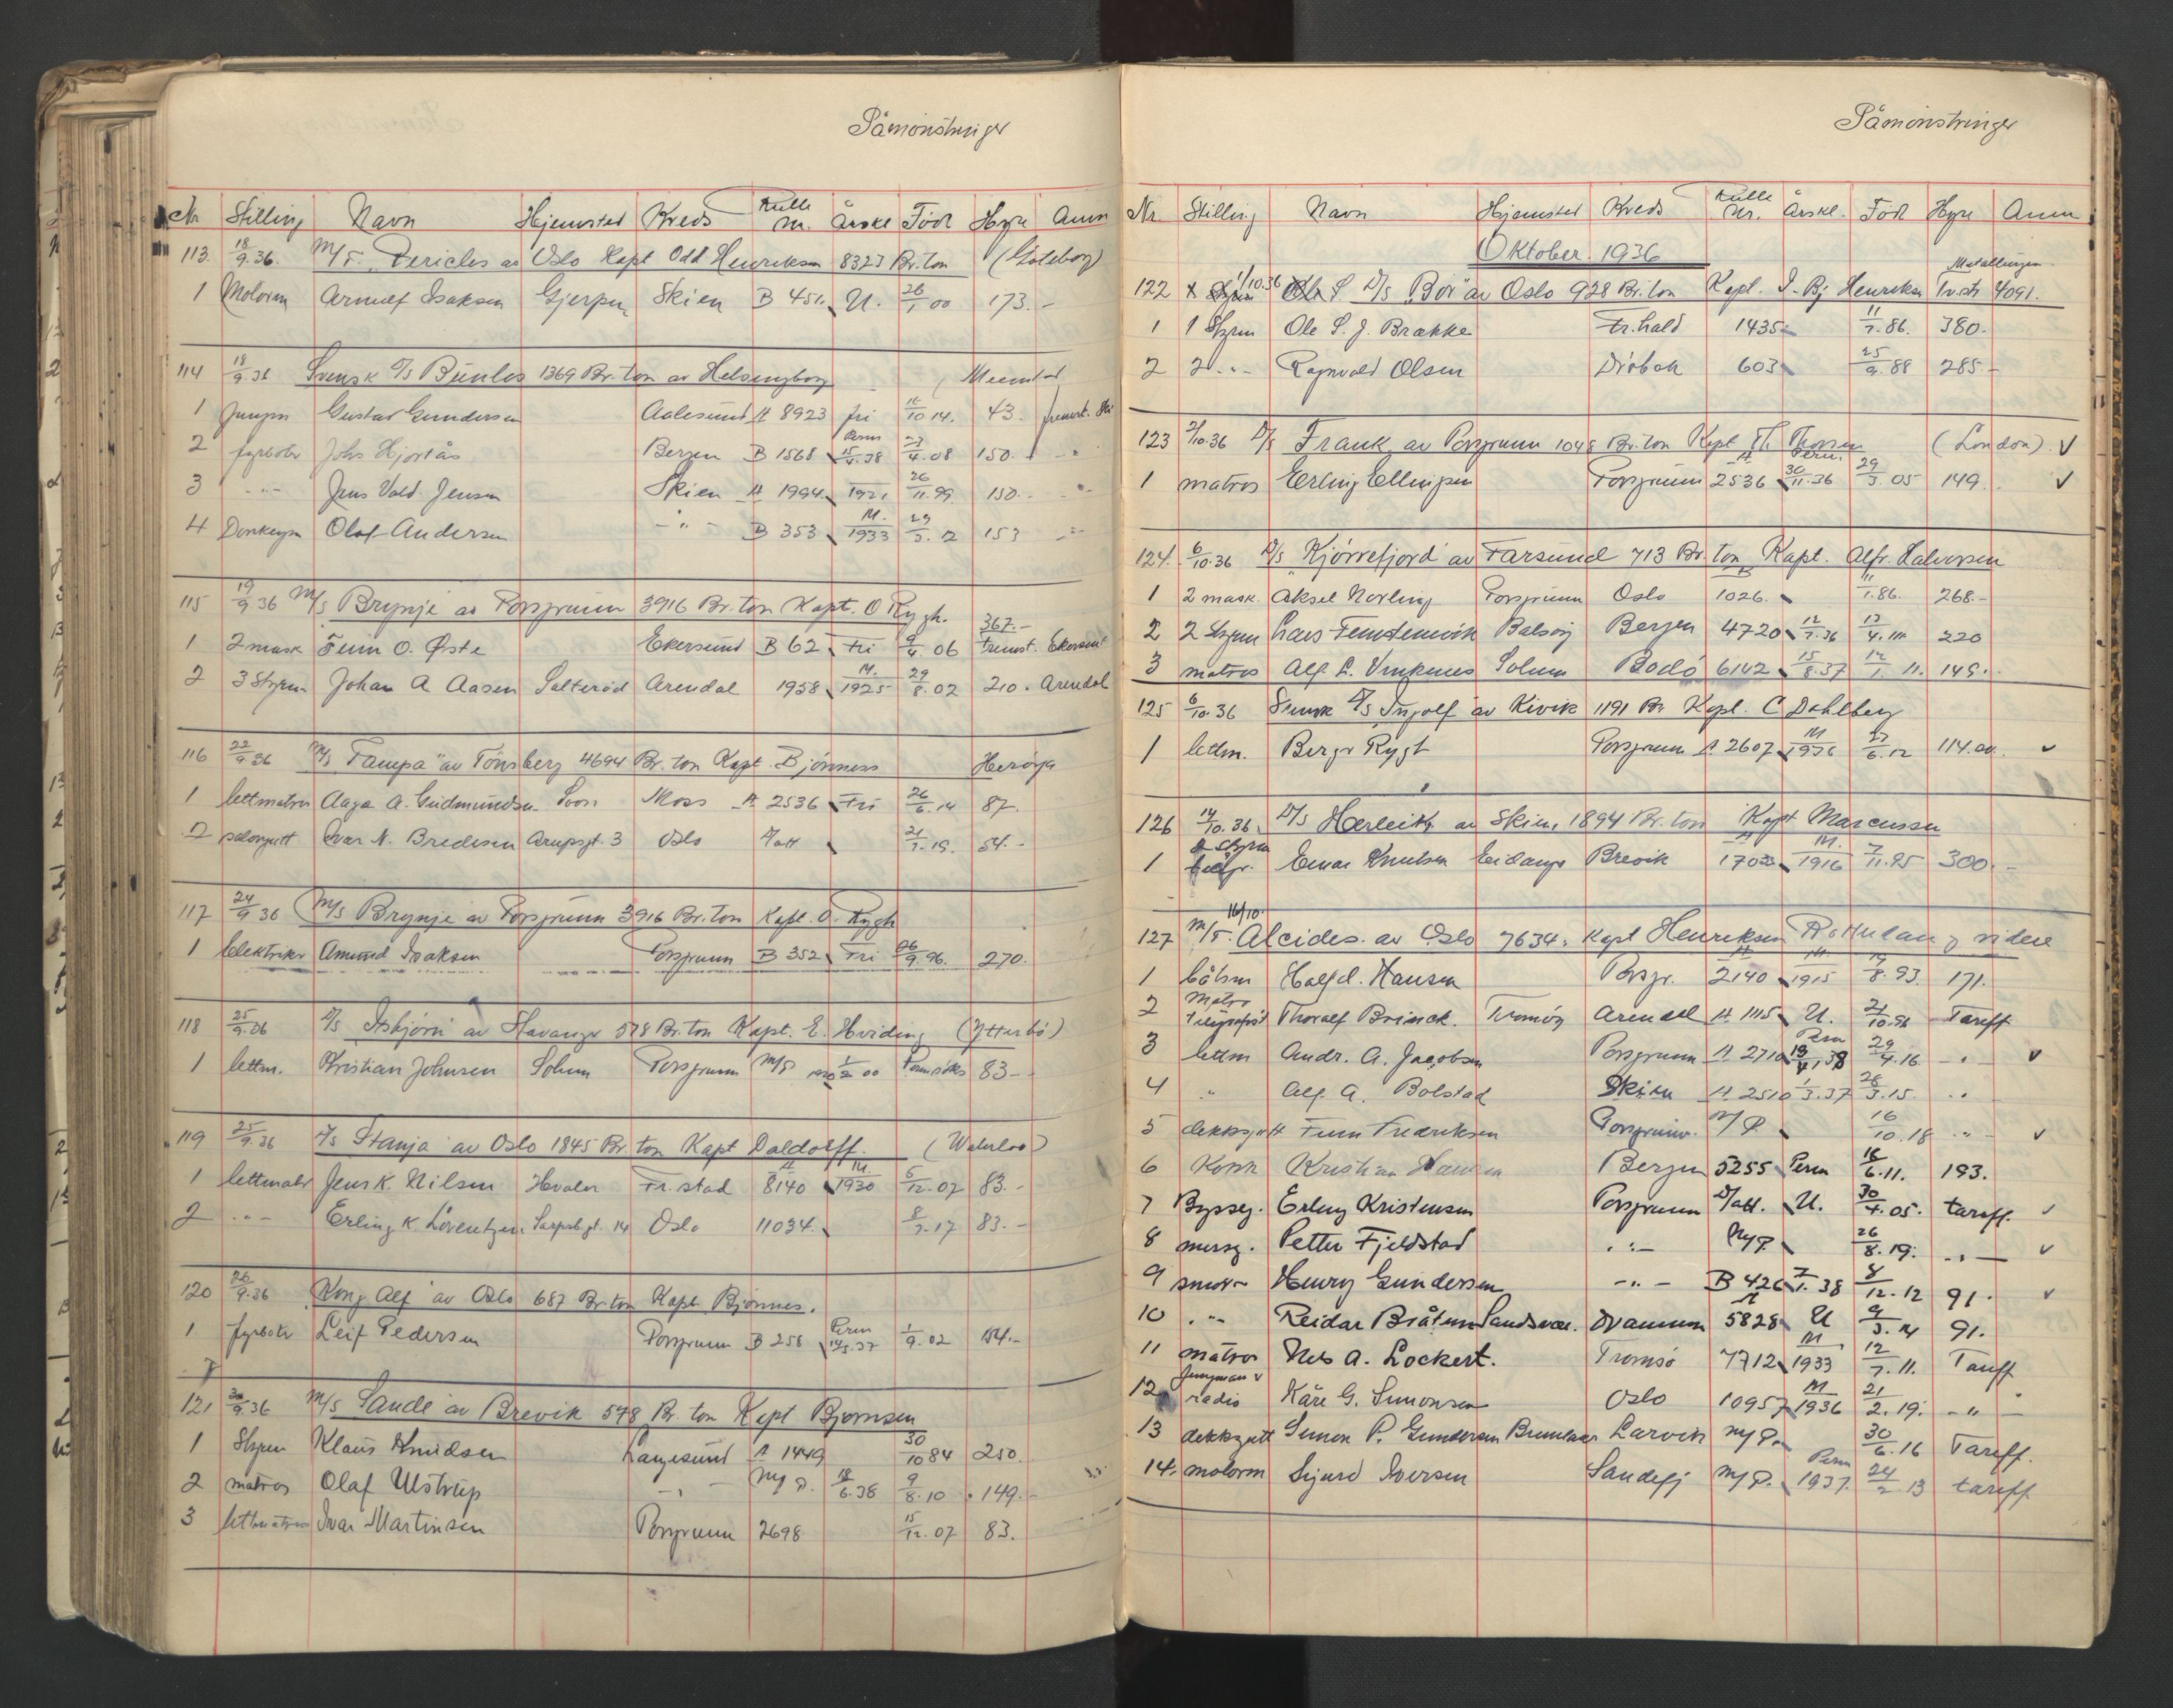 Påmönstringer
Nr. Stilling Navn Hjemsted Kreds Rulle nr. Årskl Född Hyre Anm
113. 18/9.36. M/T. Pericles av Oslo Kapt Odd Henriksen 8323 Br.ton (Göteborg)
1 Motorm Arnulf Isaksen Gjerpen Skien B 451. U. 26/1 00 173.-
114 18/9.36 Svensk D/S 1369 Br.ton av Helsingborg
1 Jungm Gustav Gundersen Aalesund A 8923 fri 10 14. 43.
2 fyrböter Johs Hjortås Bergen B 1568 15/4.38 23/4.08 150.-
3 -"- Jens Vald. Jensen Skien A 1994 1921 26/11.99 150.-
4 Donkeym Olaf Andersen -"- B 353 M. 1933 29/3.12 153 -"-
115 19/9.36 M/S Brynje av Porsgrunn 3916 Br.ton Kapt. O Rygh.
1 2 mask Finn O. Øste Ekersund B 62 fri 9/4. 06 367.- Ekersund
2 3 Styrm Johan A Aasen Salteröd Arendal 1958 M. 1925 29/8.02 210. Arendal
116 22/9.36 M/S "Tampa" av Tönsberg 4694 Br.ton Kapt. Björness Heröya
1 lettmatros Aage A. Gudmundsen Soon Moss A 2536 Fri 26/6.14 87.
2 salongutt Ivar N. Bredesen Arupsgt. 3 Oslo 21/7.19. 54.-
117 24/9 36 M/S Brynje av Porsgrunn 3916 Br.ton Kapt. O. Rygh
1 Elektriker Amund Isaksen Porsgrunn B 352 Fri 26/9.96. 270.
118 25/9.36 D/S Asbjörn av Stavanger 578 Br.ton Kapt. E. Hviding (Ytterbö)
1 lettm. Kristian Johnsen Solum Porsgrunn M/P 1/2 00 83.-
119 25/9.36 D/S Stanja av Oslo 1845 Br.ton Kapt Daldorff. (Waterloo)
1 lettmatr Jens K. Nilsen Hvaler Fr.stad A 8140 M. 1930 5/12.07 83.-
2 -"- Erling K. Lorentzen Sarpsbgt. 14 Oslo 11034 8/7.17 83.-
120 26/9.36 Kong Alf av Oslo 687 Br.ton Kapt Björnnes.
1 fyrböter Leif Pedersen Porsgrunn B 258 Perm 37 1/9.02 154.-
121 30/9.36 M/S Sande av Brevik 578 Br.ton Kapt Bjornsen
1 Styrm Klaus Knudsen Langesund A 1449 30/10 84 250.
2 matros Olaf Ulstrup -"- M/P. 18/6.38 9/8.10 149.-
3 lettmatros Ivar Martinsen Porsgrunn 2698 15/12.07 83.
Påmönstringer
Nr. Stilling Navn Hjemsted Kreds Rulle Nr. Årskl. Född Hyre Anm
Oktober 1936
122 1/10.36 D/S "Bör" av Oslo 928 Br.ton Kapt. I. Bj Henriksen 4091.
1 1 Styrm Ole S. J. Brække Fr.hald 1435 11/7.86. 380.-
2 2 -"- Ragnvald Olsen Dröbak 603 25/9.88 285.-
123 2/10.36 D/S Frank av Porsgrunn 1048 Br.ton Kapt Th. Thorsen (London). V
1 matros Erling Ellingsen Porsgrunn A 2536 Perm. 30/11.36 29/3.05 149. V
124. 6/10.36 D/S Kjörrefjord av Farsund 713 Br.ton Kapt. Alfr. Halvorsen
1 2 mask. Aksel Norling Porsgrunn Oslo 1026. 11/1.86. 268.-
2 2 Styrm Bergen 4720 12/7.36 220
3 matros Alf L. Solum Bodö 6142 15/8.37 12/1. 11. 149.
125 6/10.36 Svensk D/S Ingolf av Kivik 1191 Br. Kapt. C Dahlberg
1 lettm. Berger Rygh Porsgrunn A 2607 M 1936 114.00. v
126 14/10.36. D/S Herleik av Skien 1894 Br.ton Kapt Marcussen
1 2 Styrm Einar Knutsen Eidanger Brevik A M. 1916 7/11.95 300.-
127 16/10. M/T. Alcides av Oslo 7634. Kapt Henriksen
1 båtsm Halfd. Hansen Porsgr. A 2140 M. 1915 19/8.93. 171.
2 Thoralf Brinck. Tromöy Arendal A 1115 U. 21/10.96 Tariff
3 lettm Andr. A. Jacobsen Porsgrunn A 2710 Perm 13/4.38 29/4.16 -"- v
4 " Alf A. Bolstad Skien A 2510 1/3.37 28/3.15. "
5 dekksgutt Finn Fredriksen Porsgrunn. M/P. 16/10.18 -"- v
6 Kokk Kristian Hansen Bergen 5255 Perm 16/6.11. 193.
7 Byssg. Erling Kristensen Porsgrunn U. 30/4.05. tariff. v
8 mersg. Petter Fjeldstad -"- M/P. 26/8.19. -"- v
9 smörer Henry Gundersen -"- B 426 7/1.38 8/12.12 91. v
10 -"- Reidar Bråten Sandsvær. Drammen A 5828 U 9/3.14 91.
11 matros Nils A. Lockert. Tromsö 7712 M 1933 12/7.11. Tariff
12 Jungman radio Kåre G. Simonsen Oslo 10957 M 1936 21/2.19. -"-
13 dekksgutt Simon P. Gundersen Brunlanes Larvik M/P. 30/6.16 Tariff.
14. motorm Sigurd Iversen Sandefj M/P. Perm 1937. 24/2 13 tariff